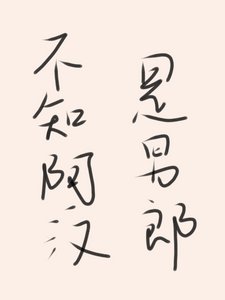 不知阿汉
是男郎